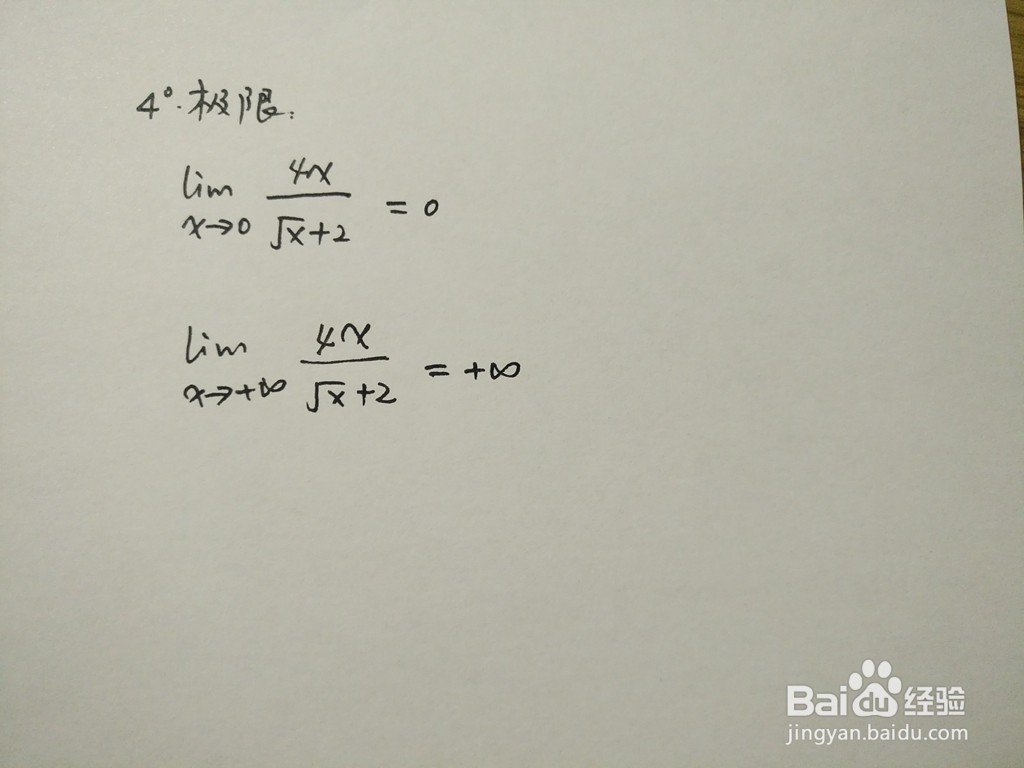 4°.极限:
lim 4x
x→0 √x+2 = 0
lim 4x
x→+∞ √x+2 = +∞
Baidu经验
jingyan.baidu.com